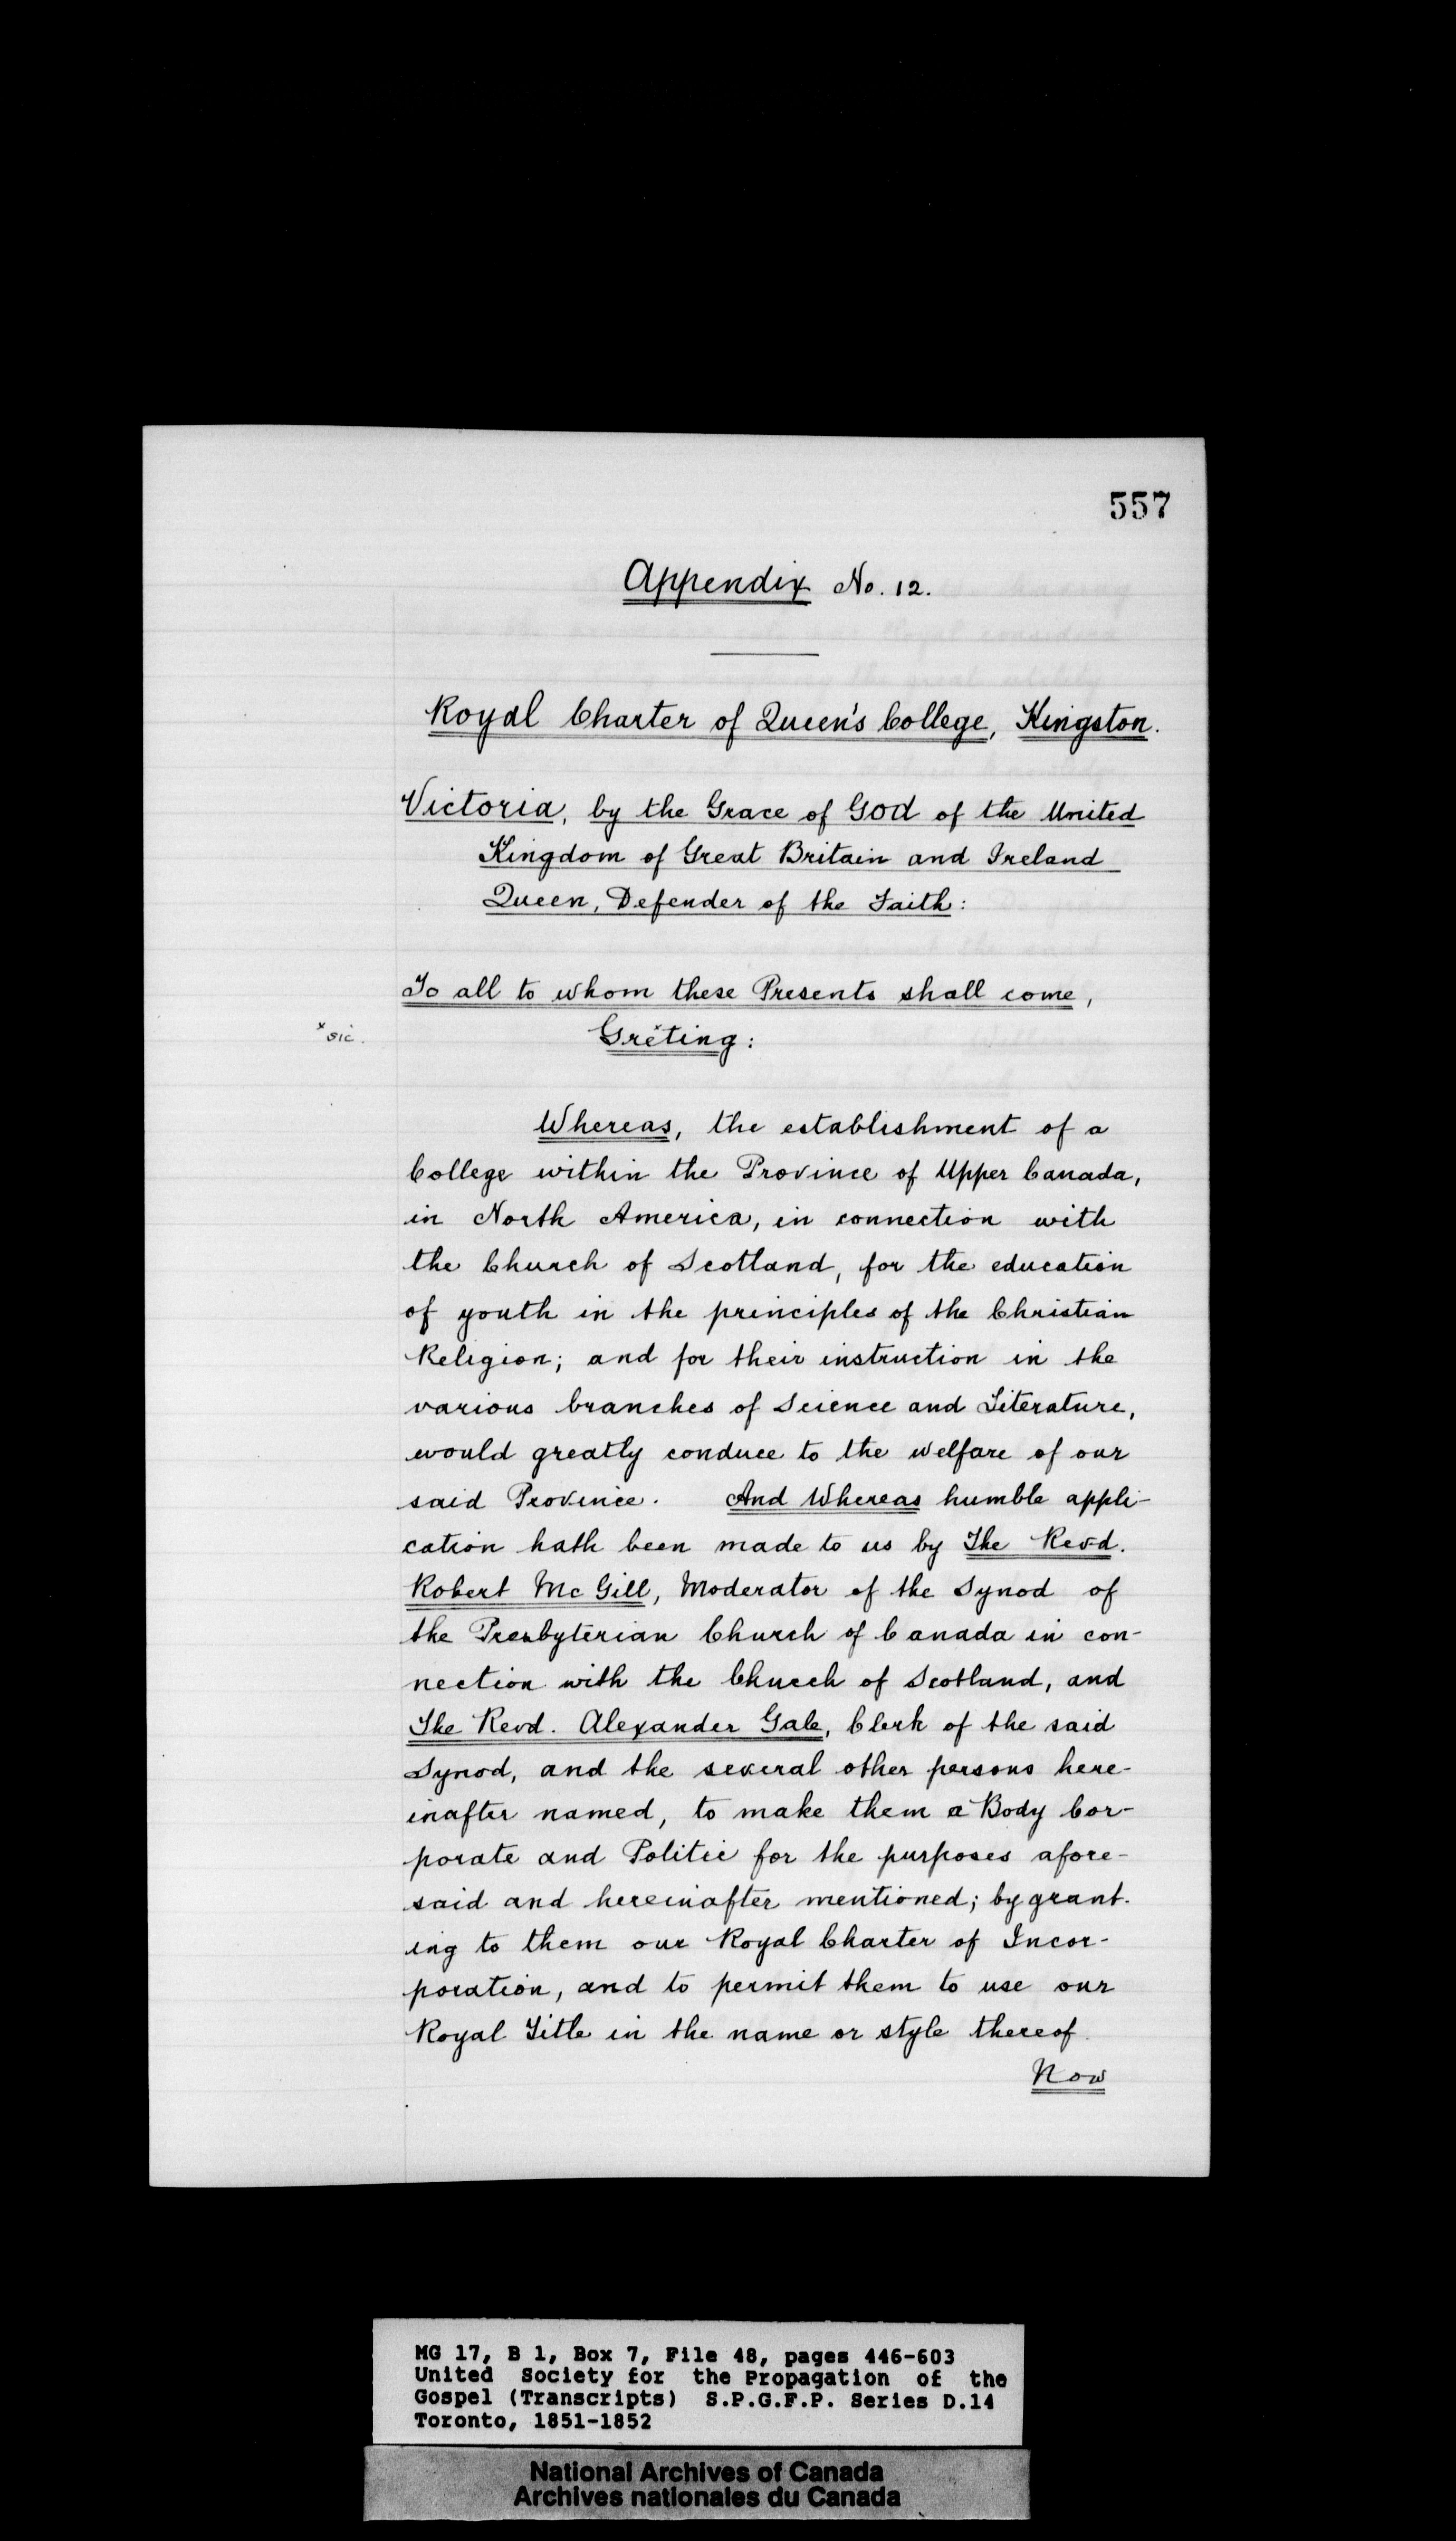 557
Appendix No. 12.
Royal Charter of Queen's College, Kingston.
Victoria, by the Grace of GOd of the United
Kingdom of Great Britain and Ireland
Queen, Defender of the Faith:
To all to whom these Presents shall come,
x sic.
Grẽting:
Whereas, the establishment of a
College within the Province of Upper Canada,
in North America, in connection with
the Church of Scotland, for the education
of youth in the principles of the Christian
Religion; and for their instruction in the
various branches of Science and Literature,
would greatly conduce to the welfare of our
said Province. And Whereas humble appli-
cation hath been made to us by The Revd.
Robert McGill, Moderator of the Synod of
the Presbyterian Church of Canada in con-
nection with the Church of Scotland, and
The Revd. Alexander Gale, Clerk of the said
Synod, and the several other persons here-
inafter named, to make them a Body Cor-
porate and Politic for the purposes afore-
said and hereinafter mentioned; by grant-
ing to them our Royal Charter of Incor-
poration, and to permit them to use our
Royal Title in the name or style thereof.
Now
MG 17, B 1, Box 7, File 48, pages 446-603
United Society for the Propagation of the
Gospel (Transcripts) S.P.G.F.P. Series D.14
Toronto, 1851-1852
National Archives of Canada
Archives nationales du Canada